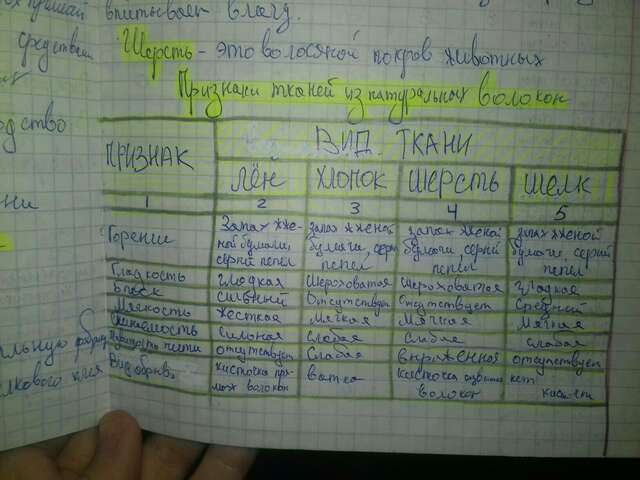 впитывает влагу.
средствам
Шерсть - это волосяной покров животных
Признаки тканей из натуральных волокон
ПРИЗНАК
ВИД ТКАНИ
ЛЁН ХЛОПОК ШЕРСТЬ ШЕЛК
1 2 3 4 5
Горение
Запах жже-
ной бумаги,
серый пепел
запах жженой
бумаги, серый
пепел
запах жженой
бумаги, серый
пепел
запах жженой
бумаги, серый
пепел
Гладкость гладкая Шероховатая шероховатая гладкая
Блеск сильный Отсутствует отсутствует Средний
Мягкость жесткая Мягкая Мягкая Мягкая
сильная слабая слабая слабая
отсутствует Слабая выраженная отсутствует
Вид обрыв.
кисточка пря-
мых волокон
ватка
кисточка
волокон